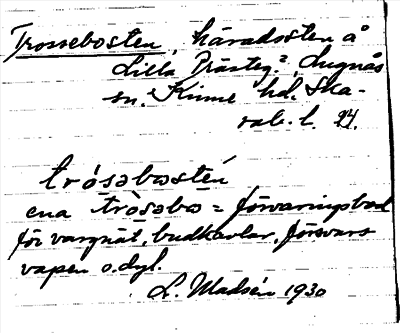 Trossebosten, häradosten å
Lilla Prästeg., Lugnås
sn. Kinne hd. Ska-
rab. l. 24.
trósəbostén
ena tròsəbo = förvaringsbod
för vargnät, budkavlar, försvars
vapen o.dyl.
L. Madsén 1930